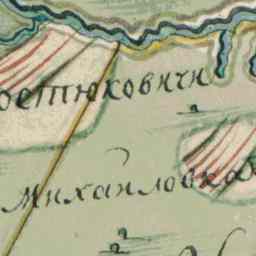 остюковичи
Михайловка